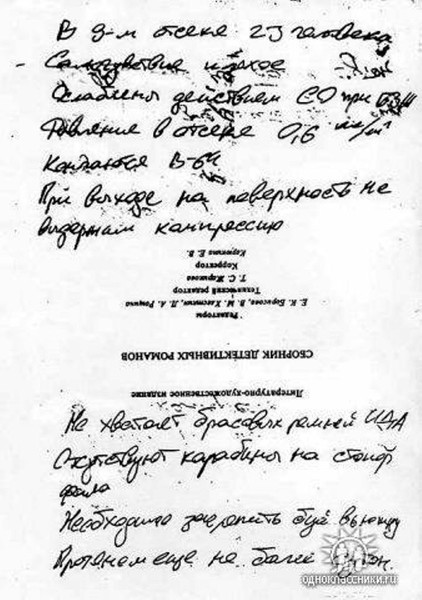 В 9-м отсеке 23 человека
Самочувствие плохое
Ослаблены действием СО при БЗЖ
Давление в отсеке 0,6 кг/см²
Кончаются В-64
При выходе на поверхность не
выдержим компрессию
Литературно-художественное издание
СБОРНИК ДЕТЕКТИВНЫХ РОМАНОВ
Редакторы
Е. К. Борисова, В. М. Л. А. Рощина
Технический редактор
Т. С. Жарикова
Корректор
Е. В.
Не хватает брасовых ремней ИДА
Отсутствуют карабины на стопор
фала
Необходимо закрепить буй
Протянем еще не более
одноклассники.ru